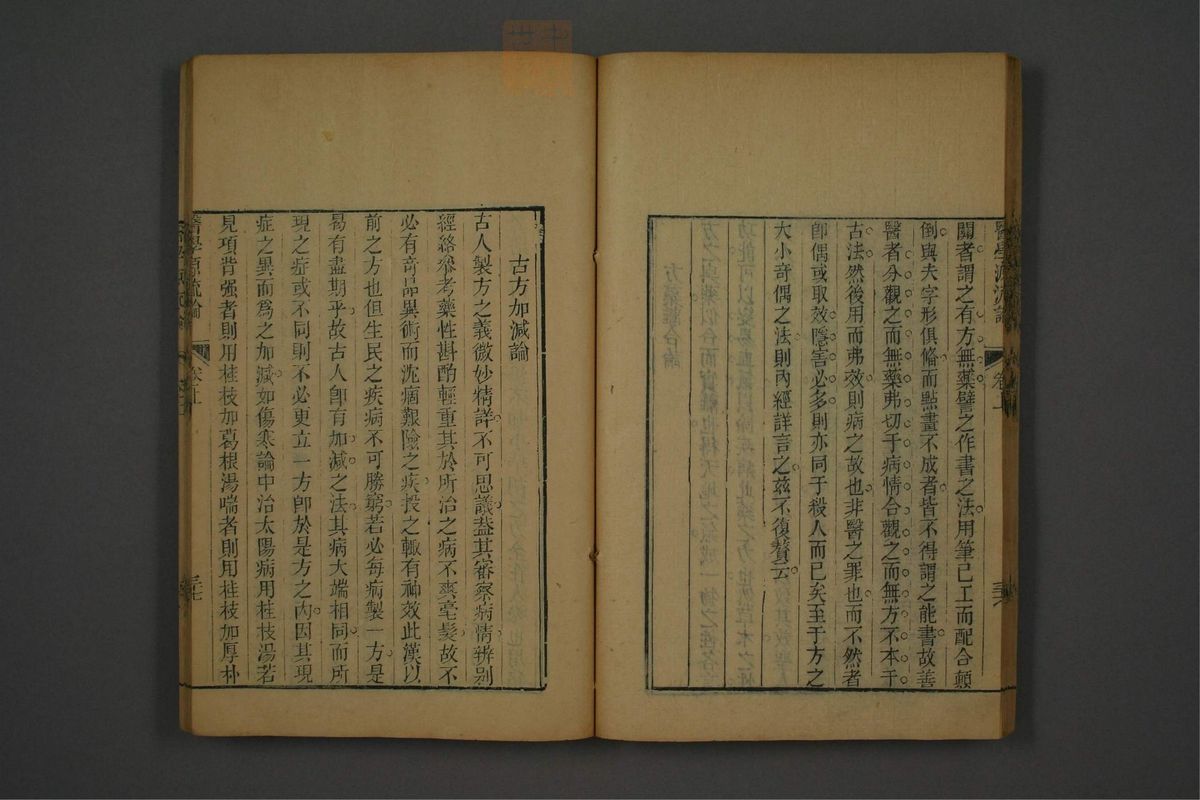 醫學源流論
卷上
三六
閱者謂之有方無藥譬之作書之法用筆已工而配合顛
倒與夫字形俱備而點畫不成者皆不得謂之能書故善
醫者分觀之而無藥弗切于病情合觀之而無方不本于
古法然後用而弗效則病之故也非醫之罪也而不然者
卽偶或取效隱害必多則亦同于殺人而已矣至于方之
大小奇偶之法則內經詳言之茲不復贅云
古方加減論
古人製方之義微妙精詳不可思議葢其審察病情辨别
經絡參考藥性斟酌輕重其於所治之病不爽毫髮故不
必有奇品異術而沈痼艱險之疾投之輒有神效此漢以
前之方也但生民之疾病不可勝窮若必每病製一方是
曷有盡期乎故古人卽有加減之法其病大端相同而所
現之症或不同則不必更立一方卽於是方之內因其現
症之異而爲之加減如傷寒論中治太陽病用桂枝湯若
見項背强者則用桂枝加葛根湯喘者則用桂枝加厚朴
醫學源流論
卷上
三七